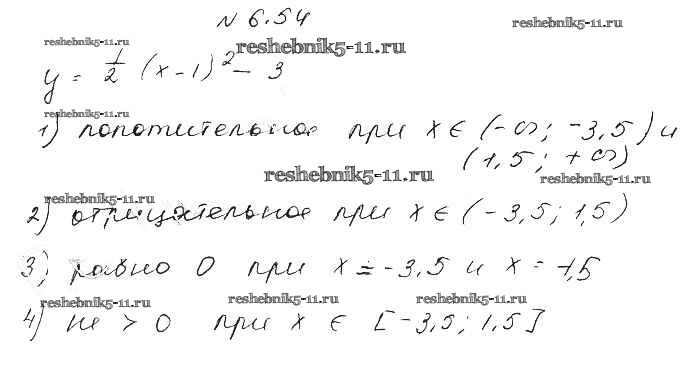 N 6.54
reshebnik5-11.ru
reshebnik5-11.ru
reshebnik5-11.ru
y = 1/2 (x-1)² - 3
reshebnik5-11.ru
1) положительное при x ∈ (-∞; -3,5) и
(1,5; +∞)
reshebnik5-11.ru
reshebnik5-11.ru
reshebnik5-11.ru
2) отрицательное при x ∈ (-3,5; 1,5)
3) равно 0 при x = -3,5 и x = 1,5
reshebnik5-11.ru
reshebnik5-11.ru
reshebnik5-11.ru
4) не > 0 при x ∈ [-3,5; 1,5]